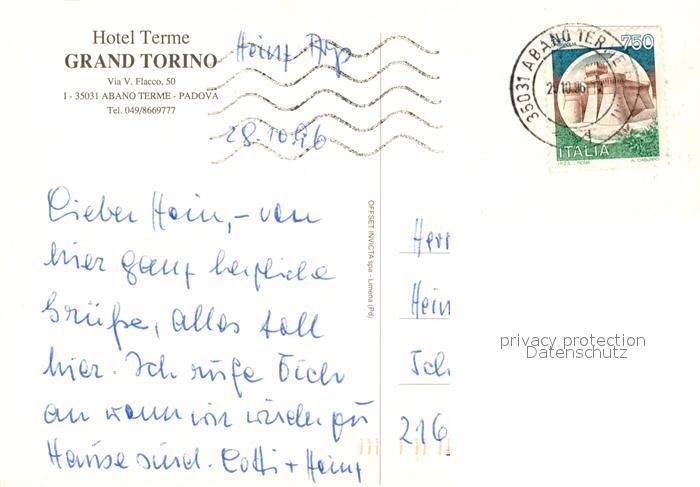 Hotel Terme
GRAND TORINO
Via V. Flacco, 50
I - 35031 ABANO TERME - PADOVA
Tel. 049/8669777
Heinz
28.10.96
35031 ABANO TERME
10.96
750
ITALIA
I.P.Z.S. - ROMA
Lieber Hein, - von
hier ganz herzliche
Grüße, alles toll
hier. Ich rufe Dich
an wenn wir wieder zu
Hause sind. Lotti + Heinz
OFFSET INVICTA spa - Limena (Pd)
Herr
Hein
216
privacy protection
Datenschutz